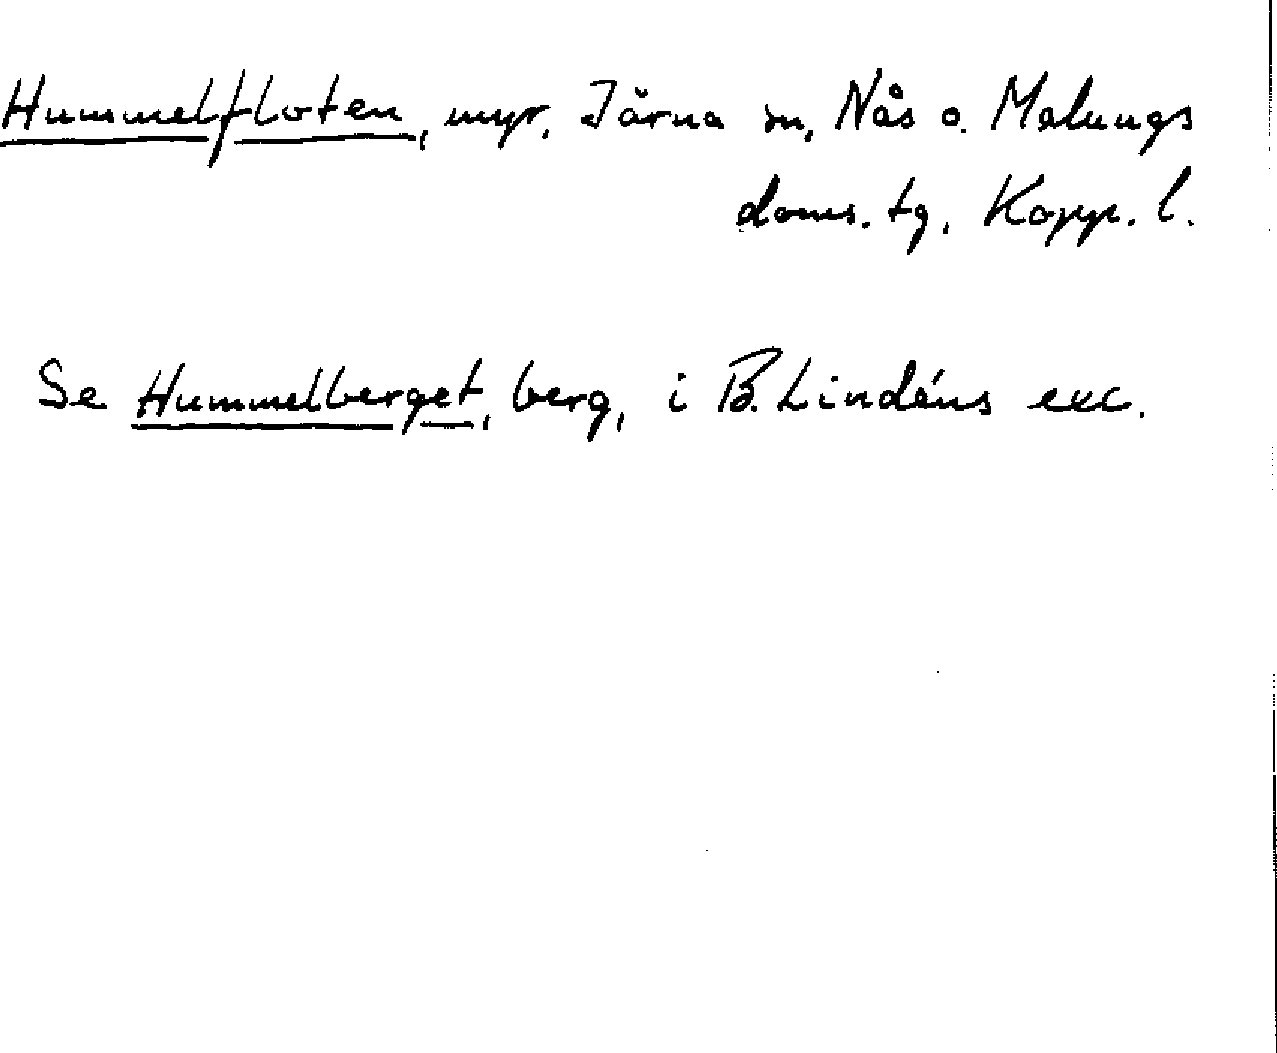 Hummelfloten, myr, Järna sn, Nås o. Malungs
doms. tg, Kopp. l.
Se Hummelberget, berg, i B. Lindéns exc.